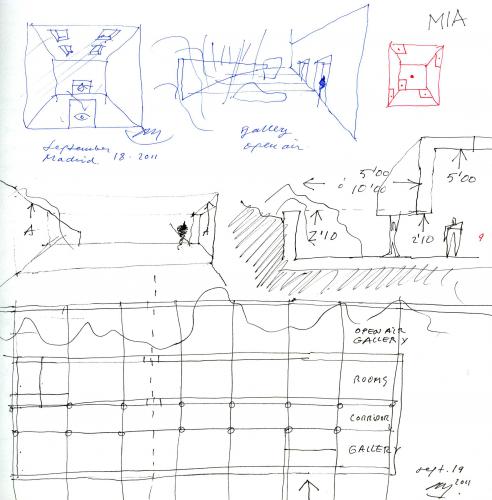 MIA
September
Madrid 18 - 2011
gallery
open air
5'00
ó 10'00
5'00
A
A
2'10
2'10
9
OPEN AIR
GALLERY
ROOMS
CORRIDOR
GALLERY
sept. 19
2011